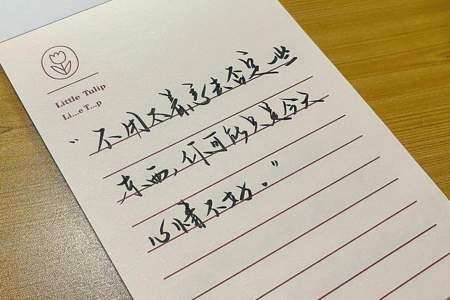 Little Tulip
Li...e T...p
"不用太着急去否定一些
东西,你可能只是今天
心情不好。"